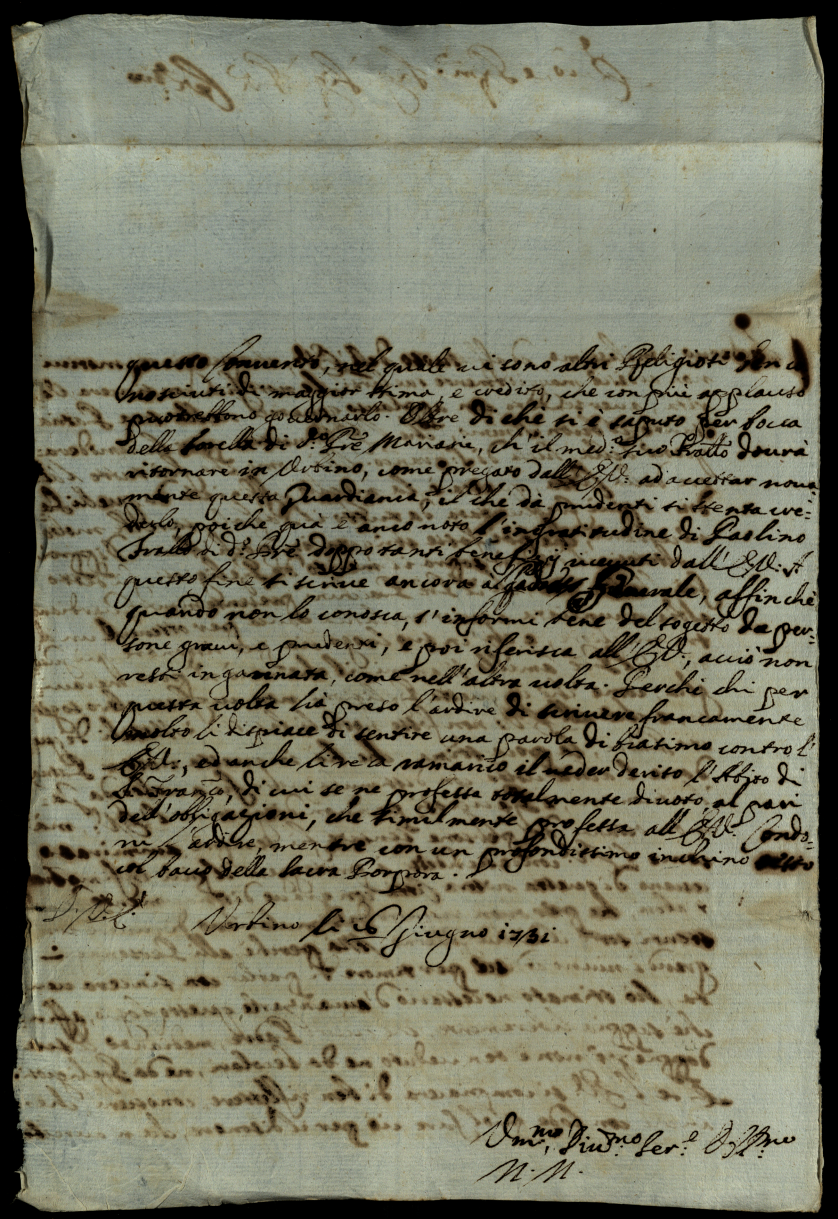 questo Convento, nel quale vi sono altri Religiosi ben co
nosciuti di maggior stima, e credito, che con più applauso
potrebbono governarlo. Oltre di che si è saputo per bocca
della sorella di d.º Prê Mariani, ch' il med.º suo Fratto dovrà
ritornare in Urbino, come pregato dall' E.V. ad accettar nova=
mente questa Guardiania, il che da prudenti si stenta cre=
derlo, poiche quà è anco noto l'ingratitudine di Paolino
Fratto di d.º Prê doppo tanti beneficij ricevuti dall' E.V. A
questo fine si scrive ancora al Padre Generale, affinchè
quando non lo conosca, s'informi bene del sogetto da per=
sone gravi, e prudenti, e poi riferisca all' E.V., acciò non
resti ingannata, come nell'altra volta. Perchi chi per
questa volta hà preso l'ardire di scrivere francamente
molto li dispiace di sentire una parola di biasimo contro l'
E.V., ed anche si reca ramarico il veder deriso l'Abito di
S. Franc.º, di cui se ne professa totalmente divoto al pari
dell'obbligazioni, che similmente professa all' E.V. Condo=
ni l'ardire, mentre con un profondissimo inchino
col bacio della Sacra Porpora.
Urbino li 16 Giugno 1731
Um.mo Div.mo Ser.e Obl.mo
N. N.